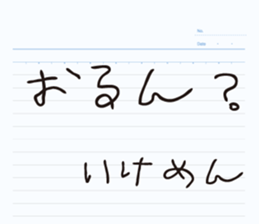 No.
Date
おるん?
いけめん